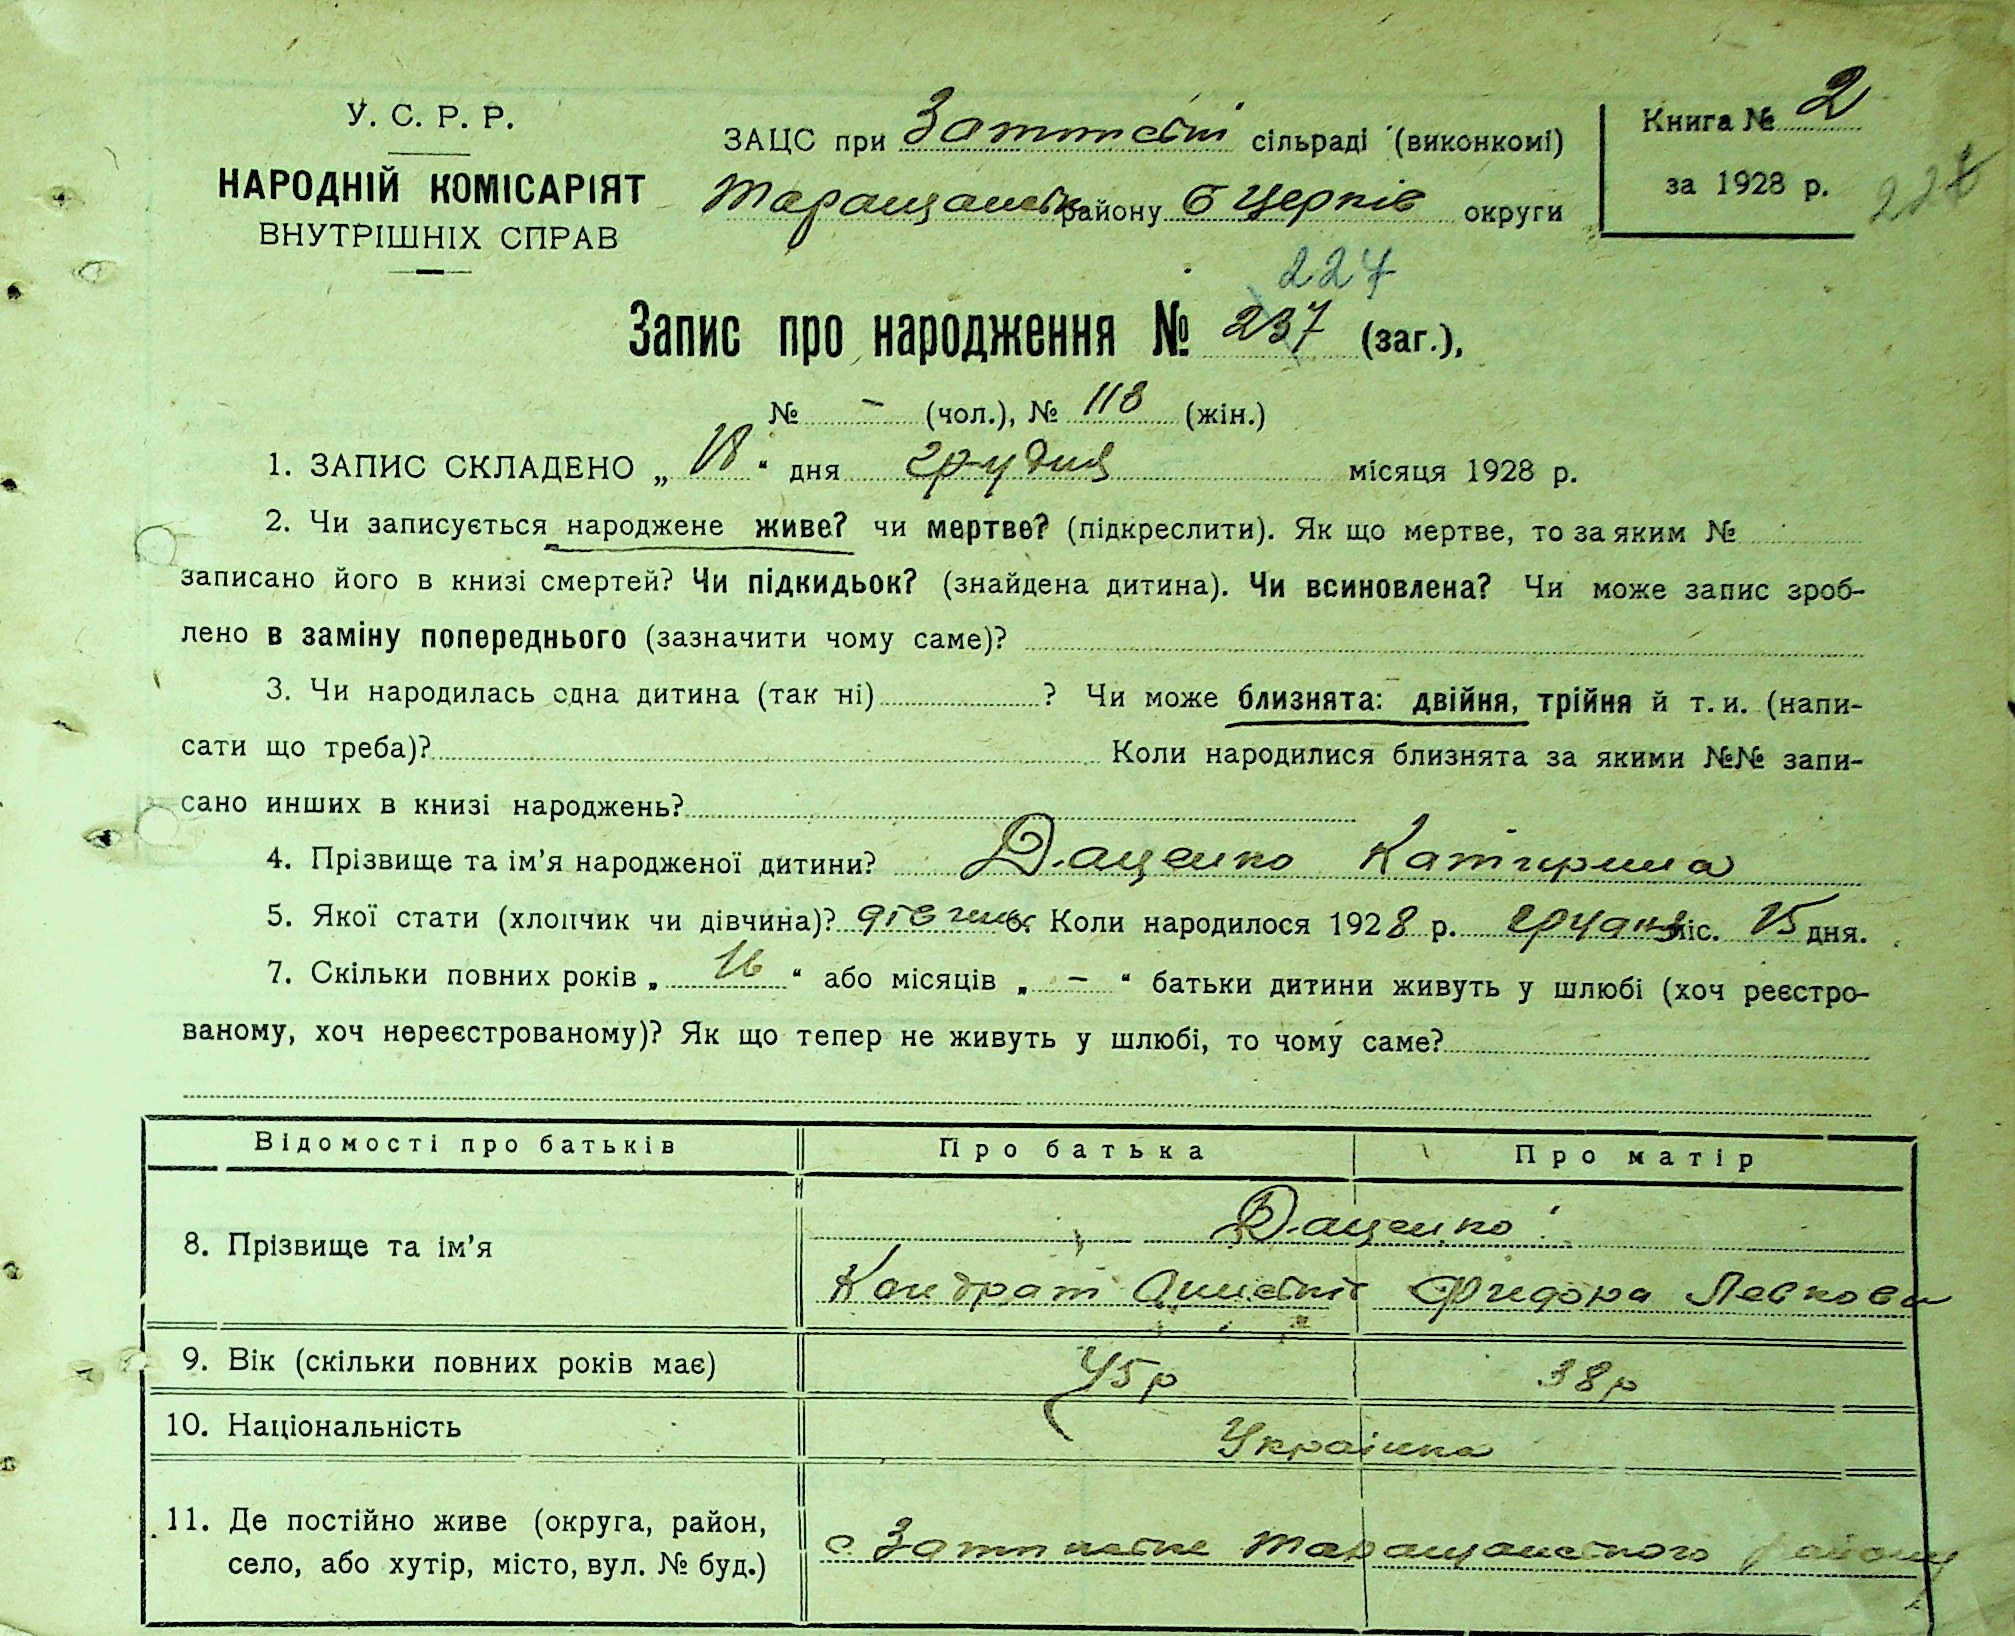 У. С. Р. Р.
НАРОДНІЙ КОМІСАРІЯТ
ВНУТРІШНІХ СПРАВ
ЗАЦС при сільраді (виконкомі)
Таращанськ району Б Церків округи
Книга № 2
за 1928 р.
228
227
Запис про народження № 237 (заг.),
№ – (чол.), № 118 (жін.)
1. ЗАПИС СКЛАДЕНО „ 18 “ дня грудня місяця 1928 р.
2. Чи записується народжене живе? чи мертве? (підкреслити). Як що мертве, то за яким №
записано його в книзі смертей? Чи підкидьок? (знайдена дитина). Чи всиновлена? Чи може запис зроб-
лено в заміну попереднього (зазначити чому саме)?
3. Чи народилась одна дитина (так ні) ? Чи може близнята: двійня, трійня й т. и. (напи-
сати що треба)? Коли народилися близнята за якими №№ запи-
сано инших в книзі народжень?
4. Прізвище та ім’я народженої дитини? Даценко Катирина
5. Якої стати (хлопчик чи дівчина)? дівчина 6. Коли народилося 1928 р. грудня міс. 15 дня.
7. Скільки повних років „ 16 “ або місяців „ – “ батьки дитини живуть у шлюбі (хоч реєстро-
ваному, хоч нереєстрованому)? Як що тепер не живуть у шлюбі, то чому саме?
Відомості про батьків Про батька Про матір
8. Прізвище та ім’я Даценко
Кондрат Левкова
9. Вік (скільки повних років має) 45 р 38 р
10. Національність Українка
11. Де постійно живе (округа, район,
село, або хутір, місто, вул. № буд.) с. Таращанського району